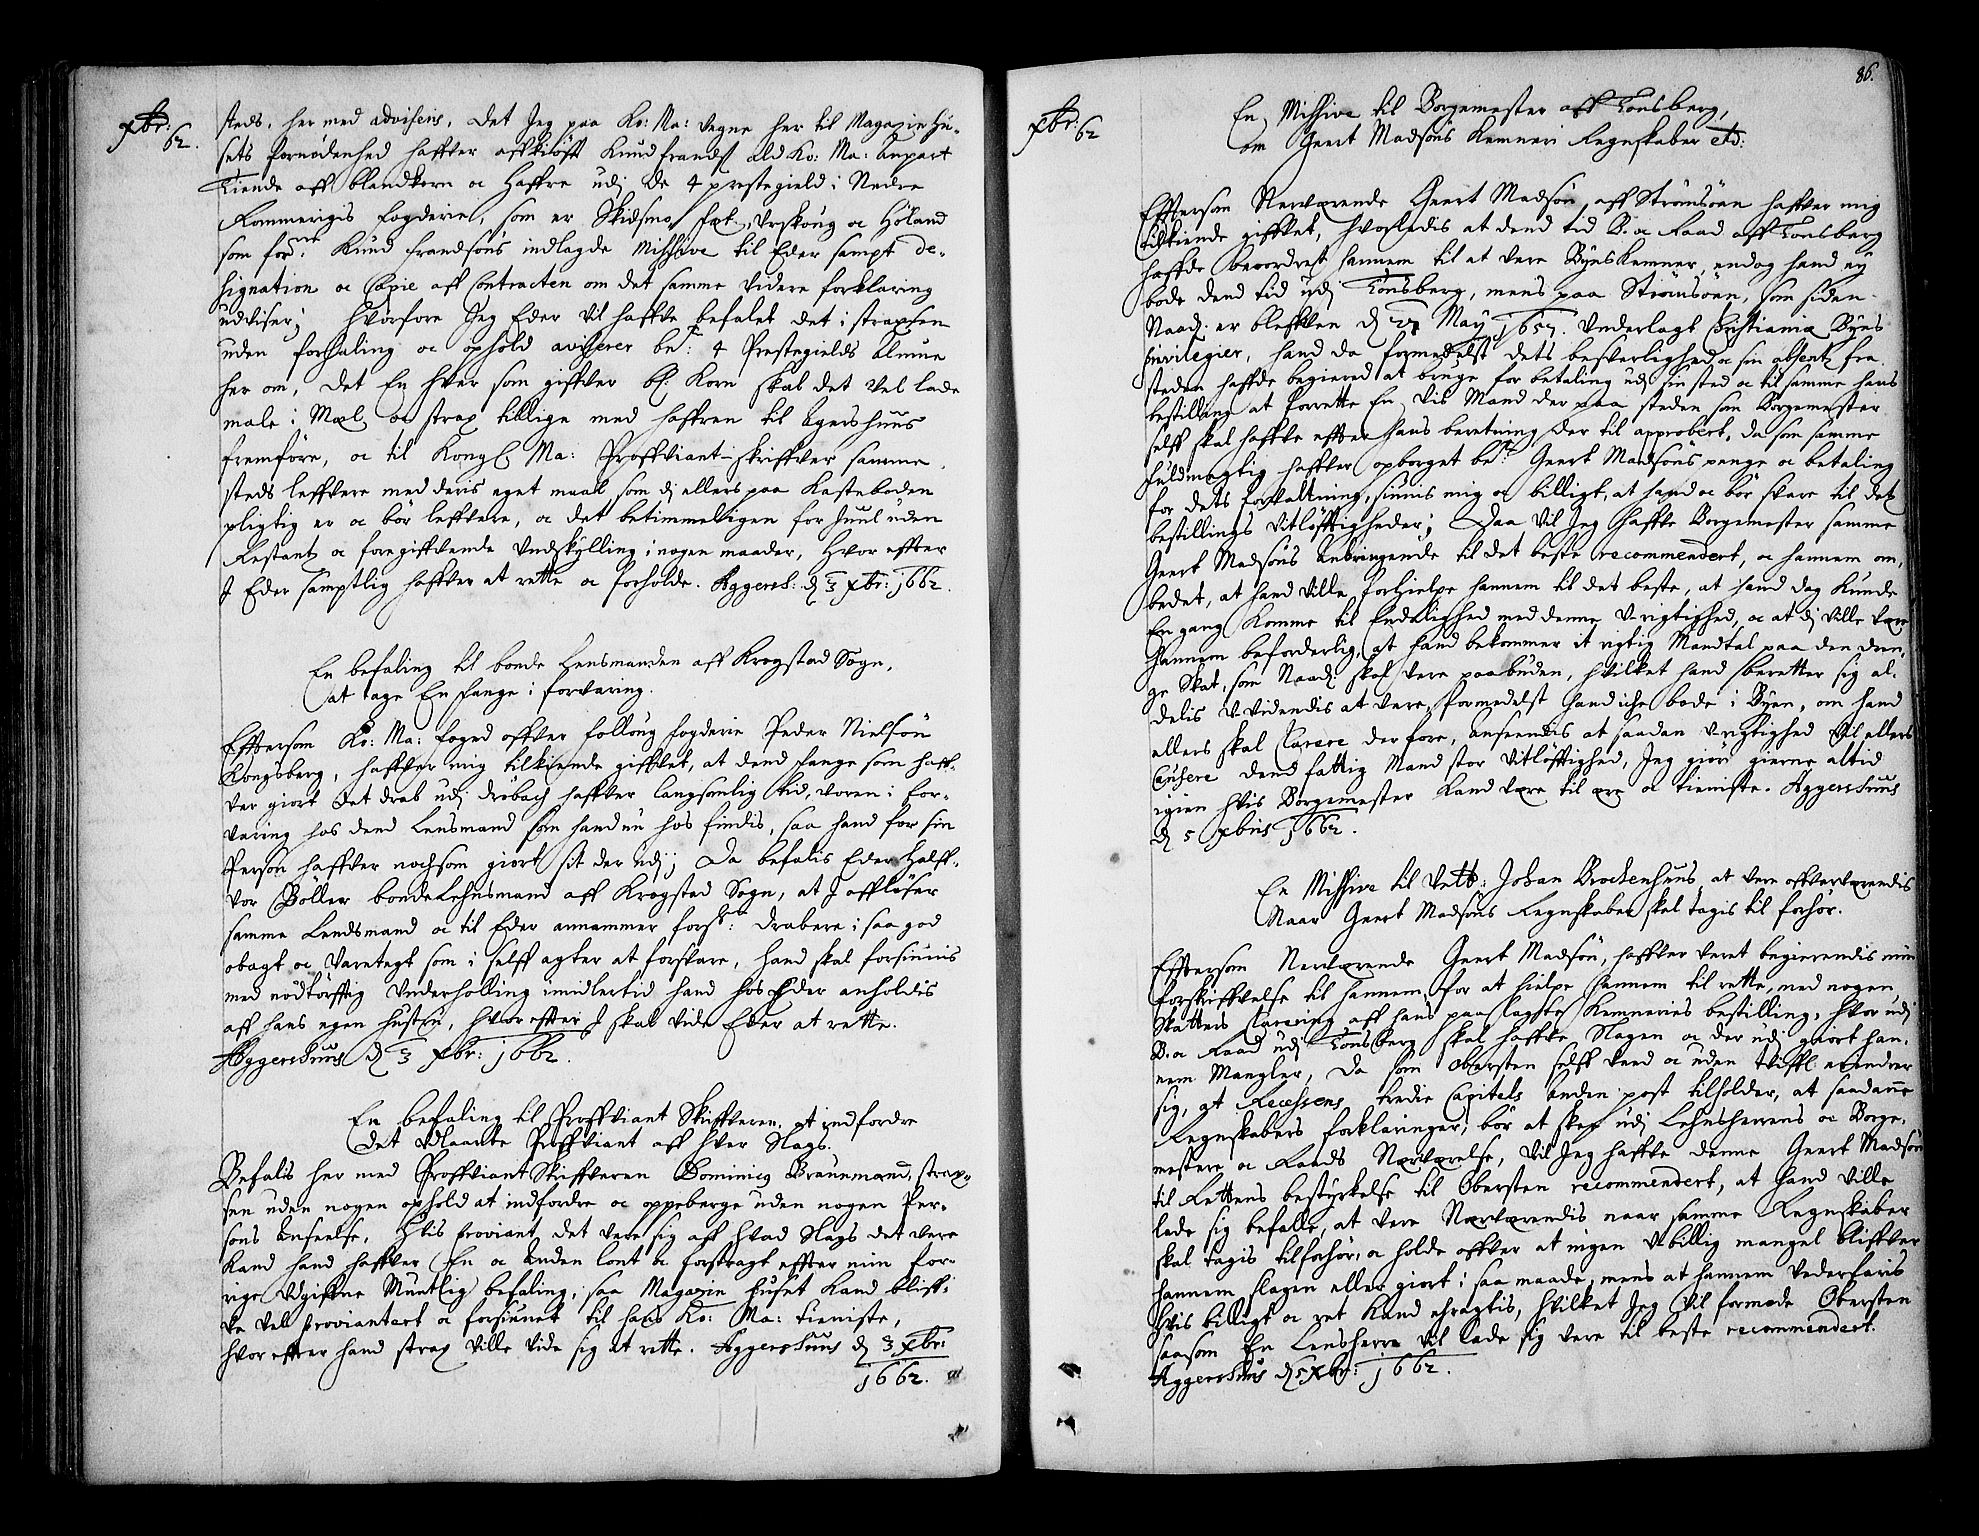 xbr: 62.
steds, her med adviseris, det Jeg paa Ko: Ma: Vegne her til Magazin Hu-
sets fornødenhed haffver affkiøfft Knud Frands: All Ko: Ma: Anpart
Tiende aff blandkorn oc Haffre udj de 4 prestegield i Nedre
Rommerigis fogderie, som er Skidsmo, Fet, Urskoug oc Høland
som forne: Knud Frandsøns indlagde Missive til Eder sampt de-
signation oc Copie aff Contracten om det samme videre forklaring
udviser; Hvorfore Jeg Eder vil haffve befalet det i straxsen
uden forhaling oc ophold aviserer bete: 4 Prestegields Almue
her om, det En hver som giffver bl: Korn skal det vel lade
male i Meel, oc strax tillige med haffren til Agershuus
fremføre, oc til Kongl Ma: Proffviant-skriffver samme-
steds leffvere med deris eget maal som dj ellers paa Kasteboden
pligtig er oc bør leffvere, oc det betimmeligen for Juul uden
Restantz oc foregiffvende Undskylling i nogen maader, Hvor effter
I Eder samptlig haffver at rette oc forholde. Aggersh: d 3 xbr: 1662.
En befaling til bonde Lensmanden aff Krogstad Sogn,
at tage En fange i forvaring.
Effersom Ko: Ma: foged offver Folloug fogderie Peder Nielsøn
Kongsberg, haffver mig tilkiende giffvet, at dend fange som haff-
ver giort det drab udj drøbach haffver langsomlig tid, voren i for-
varing hos dend Lensmand som hand nu hos findis, saa hand for sin
Person haffver nochsom giort sit der udj; Da befalis Eder Halff-
vor Bøller bonde Lehnsmand aff Krogstad Sogn, at I affløser
samme Lendsmand oc til Eder annammer forskne: drabere i saa god
obagt oc Varetegt som i selff agter at forsvare, hand skal forsiunis
med nødtørfftig Underholling imidlertid hand hos Eder anholdis
aff hans egen hustru, hvor effter I skal vide Eder at rette.
Aggershuus d 3 xbr: 1662.
En befaling til Proffviant Skriffveren, at indfordre
det Udlaante Proffviant aff hver Slags.
Befalis her med Proffviant Skriffveren Dominicus Braunmand, strax-
sen uden nogen ophold at indfordre oc oppeberge uden nogen Per-
sons Anseelse, Hvis proviant det vere sig aff hvad Slags det vere
Kand hand haffver En oc Anden lont oc forstragt effter min for-
rige Udgiffne Muntlig befaling, saa Magazin huset Kand bliff-
ve vel proviantert oc forsiunet til hans Ko: Ma: tieniste,
hvor effter hand strax ville vide sig at rette. Aggershuus d 3 xbr:
1662.
86.
xbr: 62
En Missive til Borgemester aff Tonsberg,
om Geert Madsøns Kemneri Regnskaber etc:
Effersom Nerverende Geert Madsøn aff Strømsøen haffver mig
tilkiende giffvet, hvorledis at dend tid B: oc Raad aff Tonsberg
haffde beordret hannem til at vere Byens Kemner, endog hand ey
bode dend tid udj Tonsberg, mens paa Strømsøen, som siden-
Naad: er bleffven d 27 May 1657. Underlagt Christianiæ Byes
privilegier, hand da formedelst dets besverlighed oc sin absentz fra
steden haffde begiered at bruge for betaling udj sin sted oc til samme hans
bestilling at forrette En vis Mand der paa steden som Borgemester
selff skal haffve effter hans beretning der til approbert, da som samme
fuldmegtig haffver opborget bete: Geert Madsøns penge oc betaling
for dets forvaltning, siunis mig oc billigt, at hand oc bør svare til dets
bestillings Vitløfftigheder; Saa vil Jeg haffve Borgemester samme
Geert Madsøns Anbringende til det beste recommendert, oc hannem om-
bedet, at hand ville forhielpe hannem til det beste, at hand dog Kunde
En gang Komme til Endelighed med denne U-rigtighed, oc at dj ville være
hannem beforderlig, at hand bekommer it rigtig Mandtal paa den dren-
ge Skat, som Naad: skal vere paabuden, hvilket hand beretter sig al-
delis U-videndis at vere, formedelst hand iche bode i Byen, om hand
ellers skal Clarere derfore, anseendis at saadan Urigtighed vil ellers
Causere dend fattig Mand stor Vitløfftighed, Jeg giør gierne altid
igien hvis Borgemester Kand være til ære oc tieniste. Aggershuus
d 5 xbris 1662.
En Missive til Velb: Johan Brochenhuus at vere offververendis
Naar Geert Madsøns Regnskaber skal tagis til forhør.
Effersom Nerverende Geert Madsøn, haffver veret begierendis min
forskriffvelse til hannem, for at hielpe hannem til rette, med nogen
Skatters Clarering aff hans paalagte Kemneries bestilling, hvor udj
B: oc Raad udj Tonsberg skal haffve Slagen oc der udj giort han-
nem Mangler, Da som Obersten selff veed oc uden tviffl erindrer
sig, at Recessens tredie Capitels anden post tilholder, at saadanne
Regnskabers forklaringer, bør at skee udj Lehnsherrens oc Borge-
mestere oc Raads Nærverelse, Vil Jeg haffve denne Geert Madsøn
til Rettens bestyrkelse til Obersten recommendert, at hand ville
lade sig befalle, at vere Nærverendis naar samme Regnskaber
skal tagis til forhør, oc holde offver at ingen Ubillig mangel bliffver
hannem slagen eller giort i saa maade, mens at hannem vederfaris
hvis billigt oc ret Kand eragtis, hvilket Jeg vil formode Obersten
saasom En Lensherre vil lade sig vere til beste recommendert.
Aggershuus d 5 xbr: 1662.